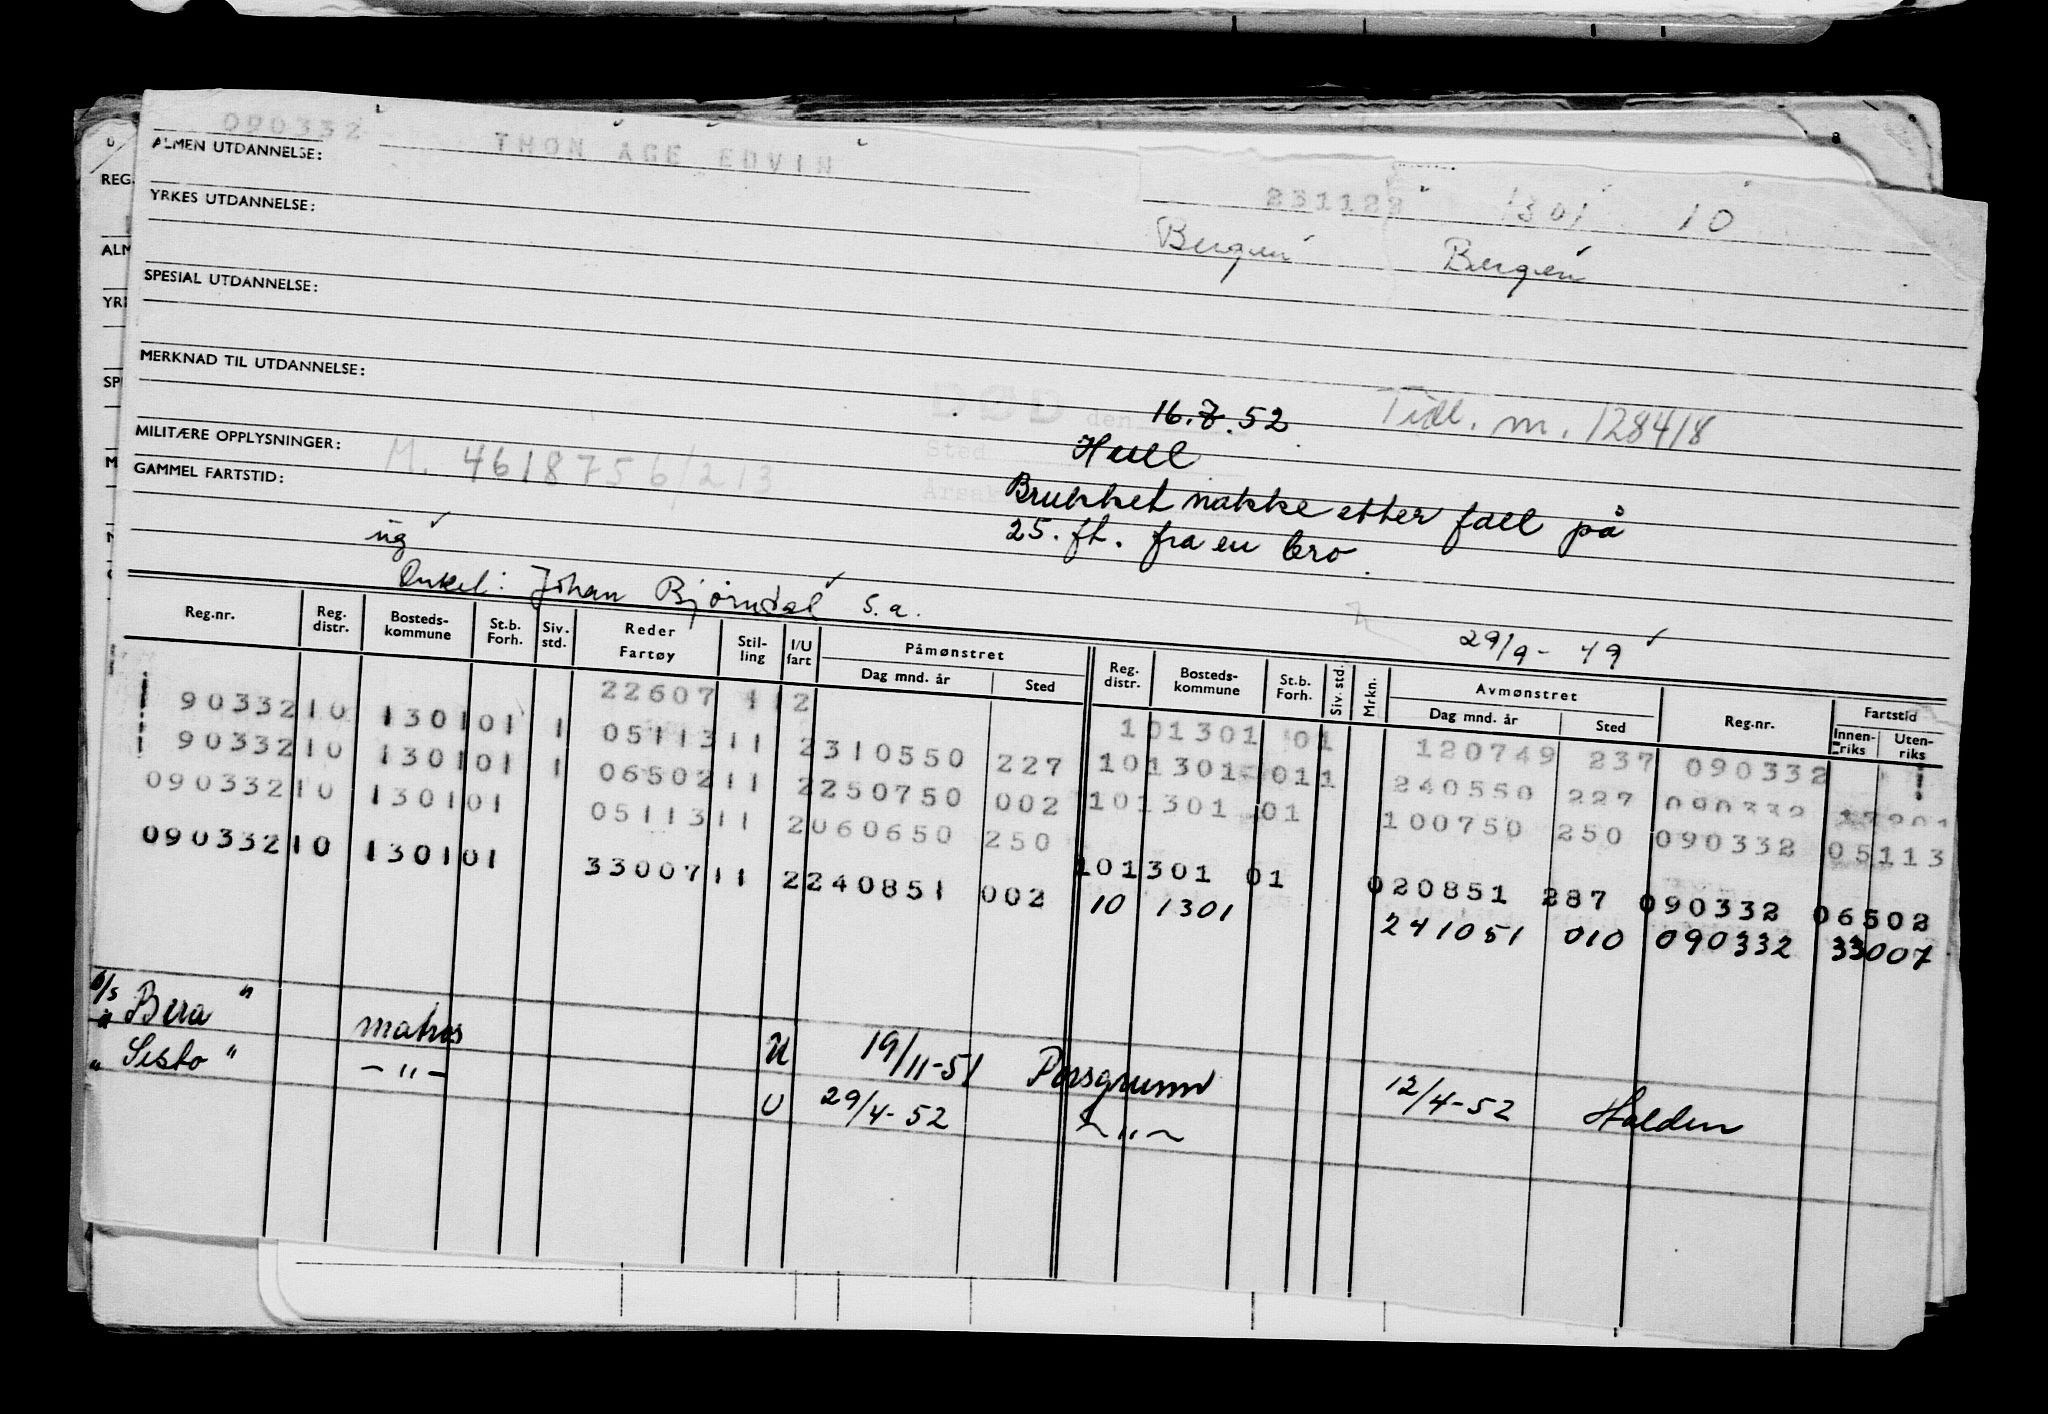 090332 THON ÅGE EDVIN
ALMEN UTDANNELSE:
231122 1301 10
YRKES UTDANNELSE:
Bergen Bergen
SPESIAL UTDANNELSE:
MERKNAD TIL UTDANNELSE:
DØD den 16.7.52 Tidl. m. 128418
Sted Hull
MILITÆRE OPPLYSNINGER: M. 4618756/213
Årsak Brukket nakke etter fall på
GAMMEL FARTSTID:
25. ft. fra en bro.
ug
Onkel: Johan Bjørndal s.a.
29/9-49
Reg.nr. Reg. distr. Bosteds-kommune St.b. Forh. Siv. std. Reder Fartøy Stil-ling I/U fart Påmønstret Dag mnd. år Sted Reg. distr. Bosteds-kommune St.b. Forh. Siv. std. Mrkn. Avmønstret Dag mnd. år Sted Reg.nr. Fartstid Innen-riks Uten-riks
22607 112 101301 01 120749 237 090332
90332 10 1301 01 1 05113 11 2 310550 227 101301 01 1 240550 227 090332
90332 10 1301 01 1 06502 11 2 250750 002 101301 01 100750 250 090332 05113
090332 10 1301 01 05113 11 2 060650 250 101301 01 020851 287 090332 06502
090332 10 1301 01 33007 11 2 240851 002 10 1301 241051 010 090332 33007
D/S "Bera" matros U 19/11-51 Porsgrunn 12/4-52 Halden
" Sisto" -"- U 29/4-52 -"-